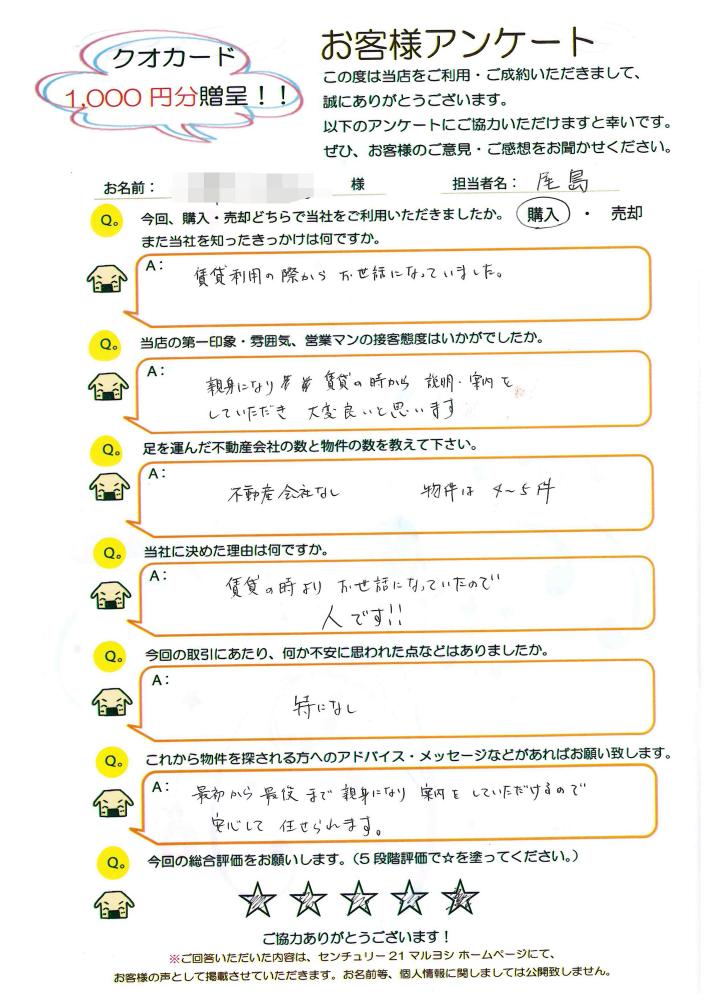 クオカード
1,000 円分贈呈！！
お客様アンケート
この度は当店をご利用・ご成約いただきまして、
誠にありがとうございます。
以下のアンケートにご協力いただけますと幸いです。
ぜひ、お客様のご意見・ご感想をお聞かせください。
お名前： 様 担当者名： 尾島
Q。 今回、購入・売却どちらで当社をご利用いただきましたか。 購入 ・ 売却
また当社を知ったきっかけは何ですか。
A： 賃貸利用の際から お世話になっていました。
Q。 当店の第一印象・雰囲気、営業マンの接客態度はいかがでしたか。
A： 親身になり 賃貸の時から 説明・案内を
していただき 大変良いと思います
Q。 足を運んだ不動産会社の数と物件の数を教えて下さい。
A： 不動産会社なし 物件は 4〜5件
Q。 当社に決めた理由は何ですか。
A： 賃貸の時より お世話になっていたので
人です!!
Q。 今回の取引にあたり、何か不安に思われた点などはありましたか。
A： 特になし
Q。 これから物件を探される方へのアドバイス・メッセージなどがあればお願い致します。
A： 最初から最後まで親身になり 案内をしていただけるので
安心して 任せられます。
Q。 今回の総合評価をお願いします。（5 段階評価で☆を塗ってください。）
ご協力ありがとうございます！
※ご回答いただいた内容は、センチュリー 21 マルヨシ ホームページにて、
お客様の声として掲載させていただきます。お名前等、個人情報に関しましては公開致しません。